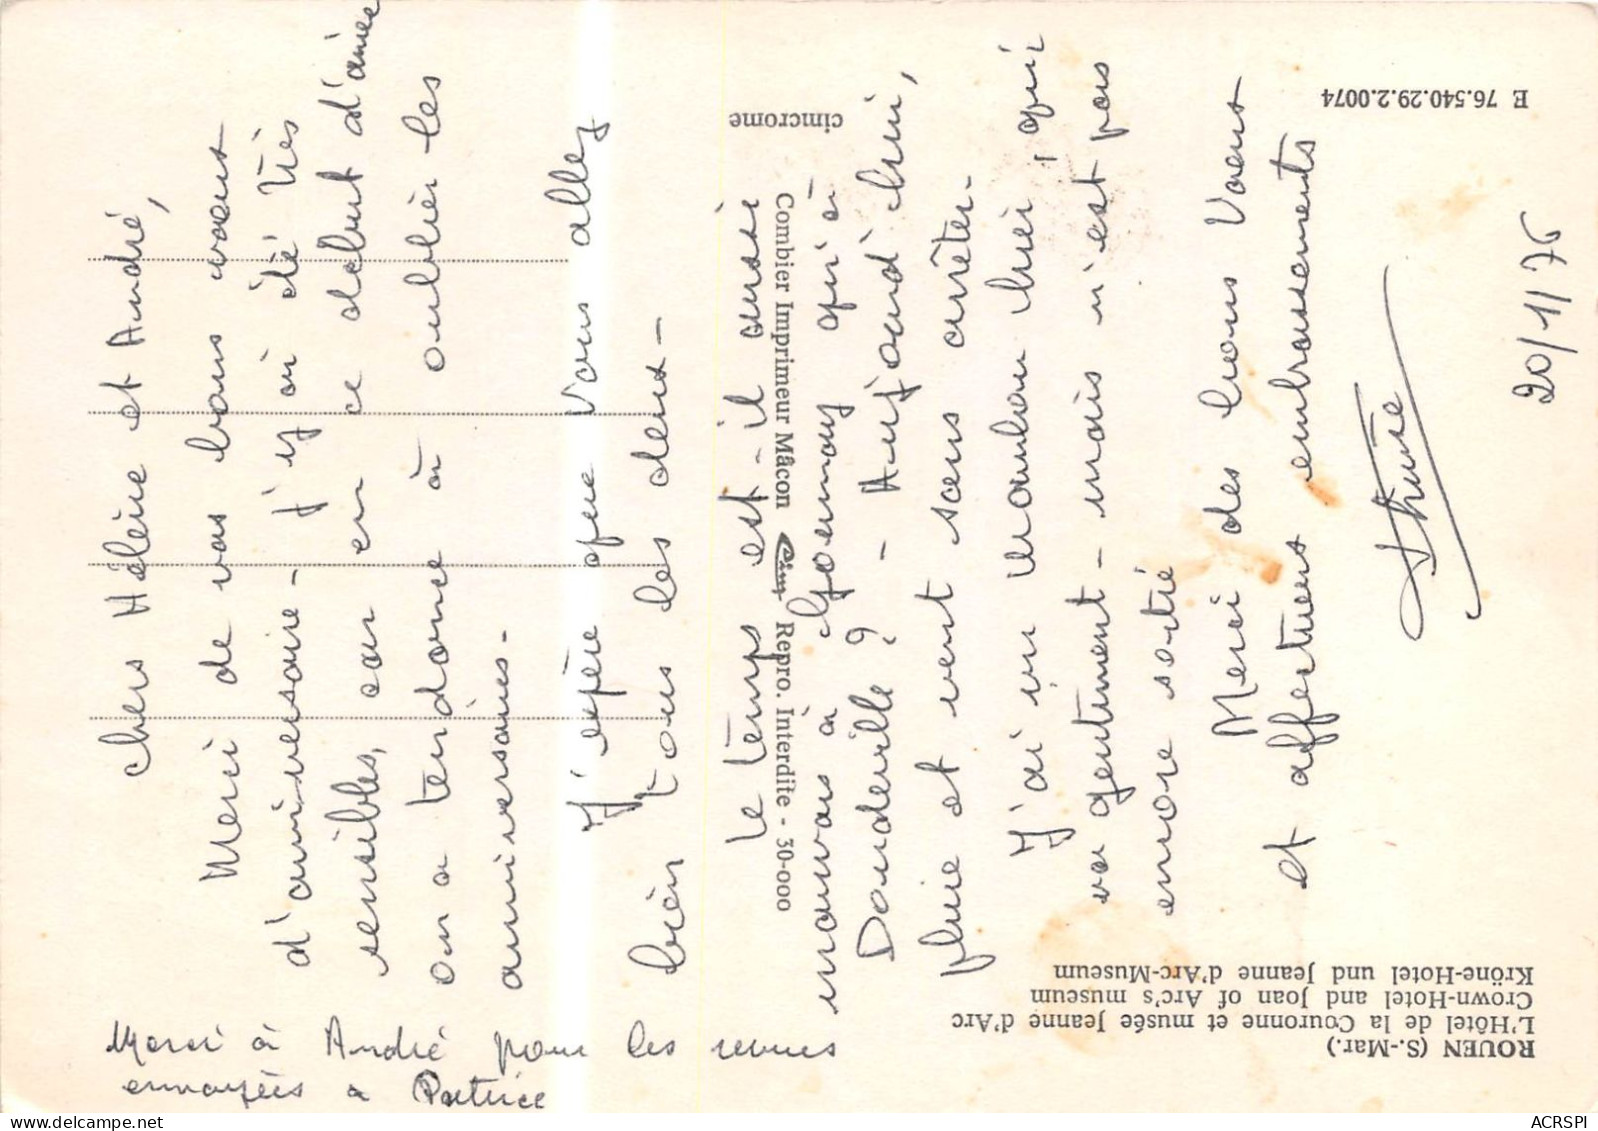 Chers Hélène et André,
Merci de vos bons vœux
d'anniversaire - J'y ai été très
sensibles, car en ce début d'année
on a tendance à oublier les
anniversaires -
J'espère que vous allez
bien tous les deux -
Le temps est-il aussi
mauvais à Gournay qu'à
Doudeville ? - Aujourd'hui,
pluie et vent sans arrêter -
J'ai vu hier, qui
va gentiment - mais n'est pas
encore sortie
Merci des bons Vœux
et affectueux embrassements
20/1/76
Merci à André pour les revues
envoyées à Patrice
ROUEN (S.-Mar.)
L'Hôtel de la Couronne et musée Jeanne d'Arc
Crown-Hotel and Joan of Arc's museum
Kröne-Hotel und Jeanne d'Arc-Museum
E 76.540.29.2.0074
Combier Imprimeur Mâcon Cim Repro. Interdite - 30-000
cimcrome
ACRSPI